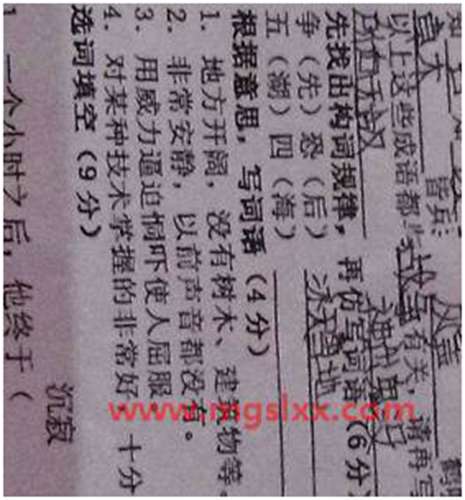 皆兵;
以上这些成语都与战争有关,请再写
先找出构词规律,再仿写词语(6分)
争(先)恐(后) 冰天雪地
五(湖)四(海)
根据意思,写词语(4分)
1. 地方开阔,没有树木、建筑物等。
2. 非常安静,以前声音都没有。
3. 用威力逼迫恫吓使人屈服
4. 对某种技术掌握的非常好,十分
选词填空(9分)
沉寂
1 一个小时之后,他终于(
www.mgslxx.com